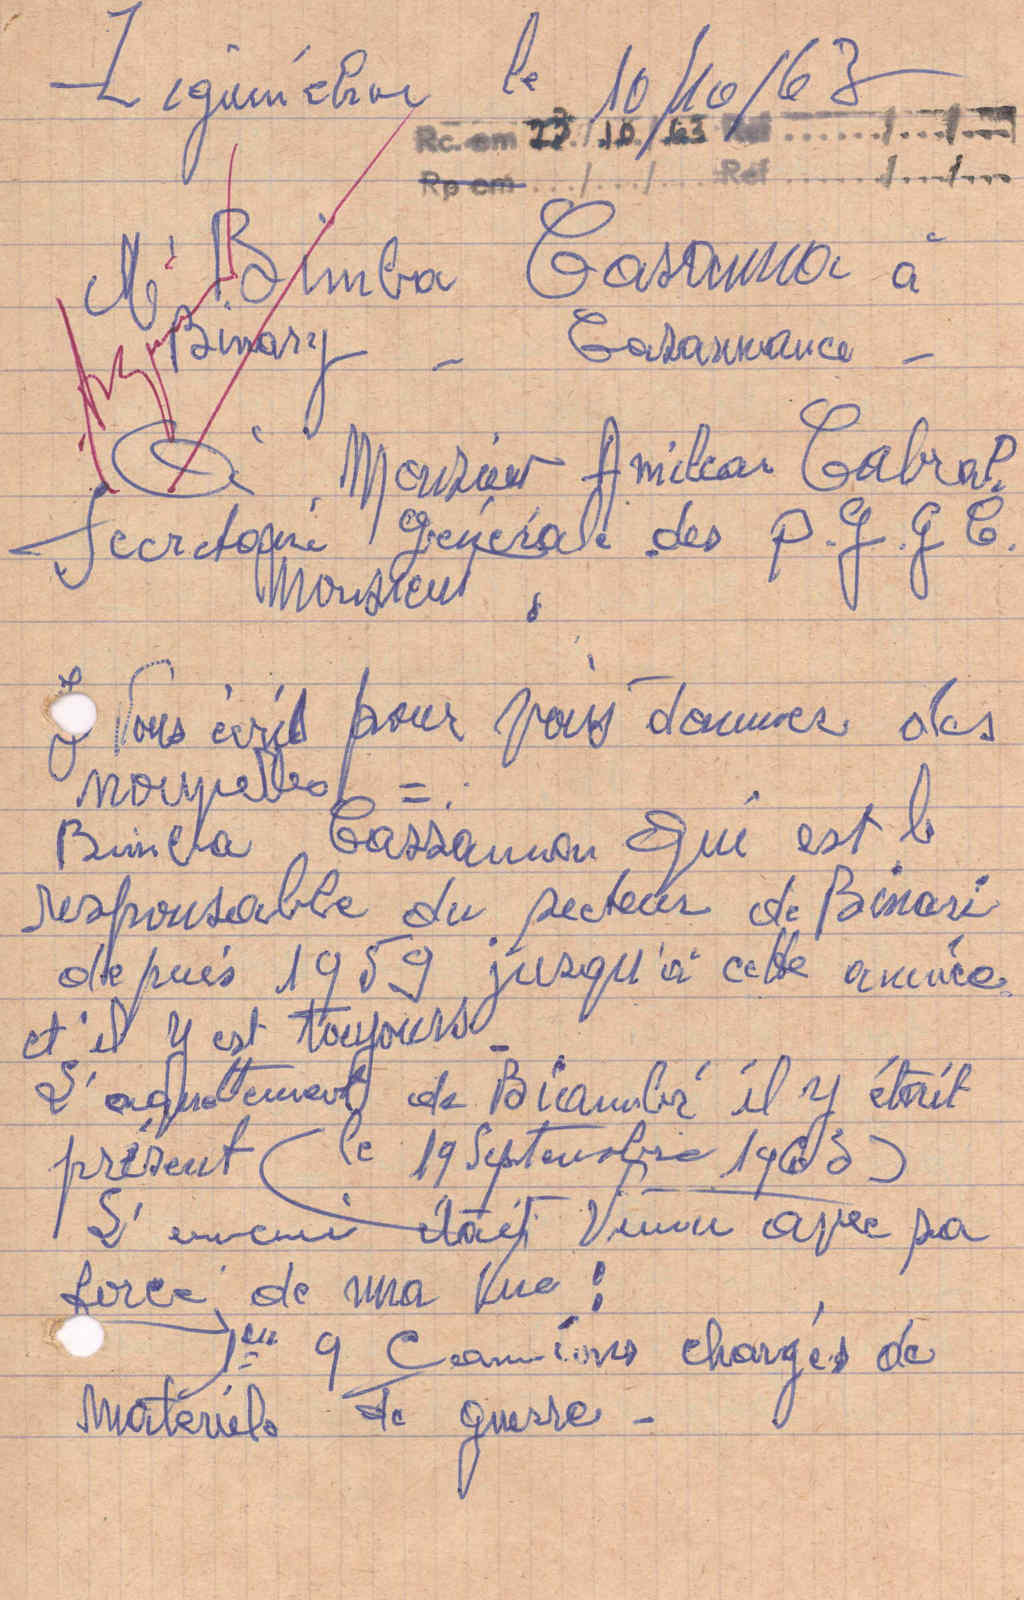 Ziguinchor le 10/10/63
Rc. em 23/10/63 Ref ....../.../...
Rp em .../.../... Ref ....../.../...
Mr Bimba Casanna à
Binary - Casamance -
à Monsieur Amilcar Cabral
Secretaire Générale des P.G.G.C.
Monsieur,
J Vous écrit pour vous donner des
nouvelles =.
Bimba Cassanna qui est le
responsable du secteur de Binari
depuis 1959 jusqu'à cette année
et il y est toujours -
L' de Biambé il y était
présent (le 19 Septembre 1963)
L'ennemi était venu avec sa
force de ma vue :
1er 9 Camions chargés de
Matériels de guerre -